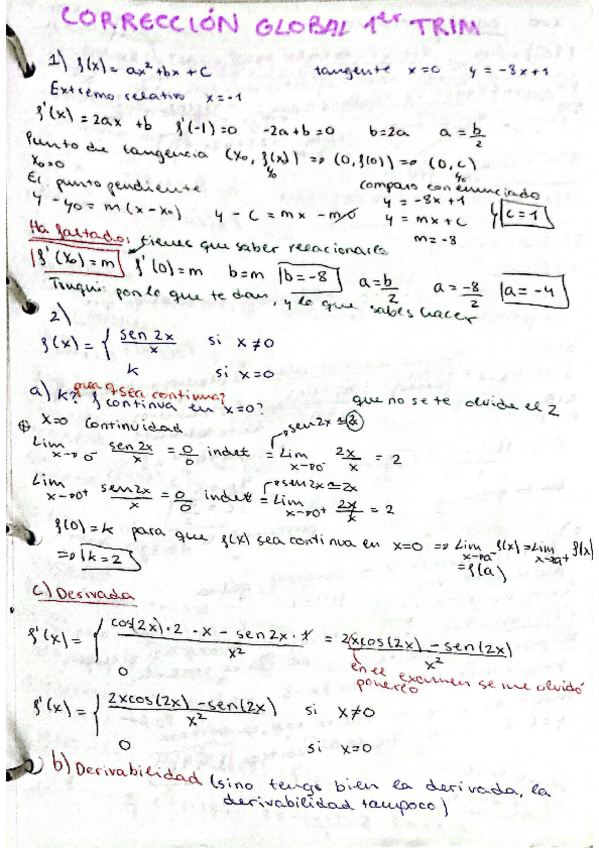 CORRECCIÓN GLOBAL 1er TRIM
1) f(x) = ax² + bx + c tangente x=0 y = -8x+1
Extremo relativo x=-1
f'(x) = 2ax + b f'(-1)=0 -2a+b=0 b=2a a = b/2
Punto de tangencia (x₀, f(x)) => (0, f(0)) => (0, c)
x₀=0 y₀ y₀
Ec punto pendiente comparo con enunciado
y - y₀ = m(x-x₀) y - c = mx - m·0 y = -8x+1
y = mx+c y c=1
m = -8
Ha faltado: tienes que saber relacionarlo
f'(x₀)=m f'(0)=m b=m b=-8 a=b/2 a=-8/2 a=-4
Tranqui: pon lo que te dan, y lo que sabes hacer
2)
f(x) = { sen 2x / x si x≠0
k si x=0
a) k? para q sea continua? f continua en x=0? que no se te olvide el 2
x=0 Continuidad sen 2x ≈ 2x
Lim x→0⁻ sen 2x / x = 0/0 indet = Lim x→0⁻ 2x/x = 2
sen 2x ≈ 2x
Lim x→0⁺ sen 2x / x = 0/0 indet = Lim x→0⁺ 2x/x = 2
f(0)=k para que f(x) sea continua en x=0 => Lim x→a⁻ f(x) = Lim x→a⁺ f(x)
=> k=2 = f(a)
c) Derivada
f'(x) = { cos(2x)·2·x - sen 2x·1 / x² = 2xcos(2x) - sen(2x) / x²
0 en el examen se me olvidó ponerlo
f'(x) = { 2xcos(2x) - sen(2x) / x² si x≠0
0 si x=0
b) Derivabilidad (sino tengo bien la derivada, la
derivabilidad tampoco)